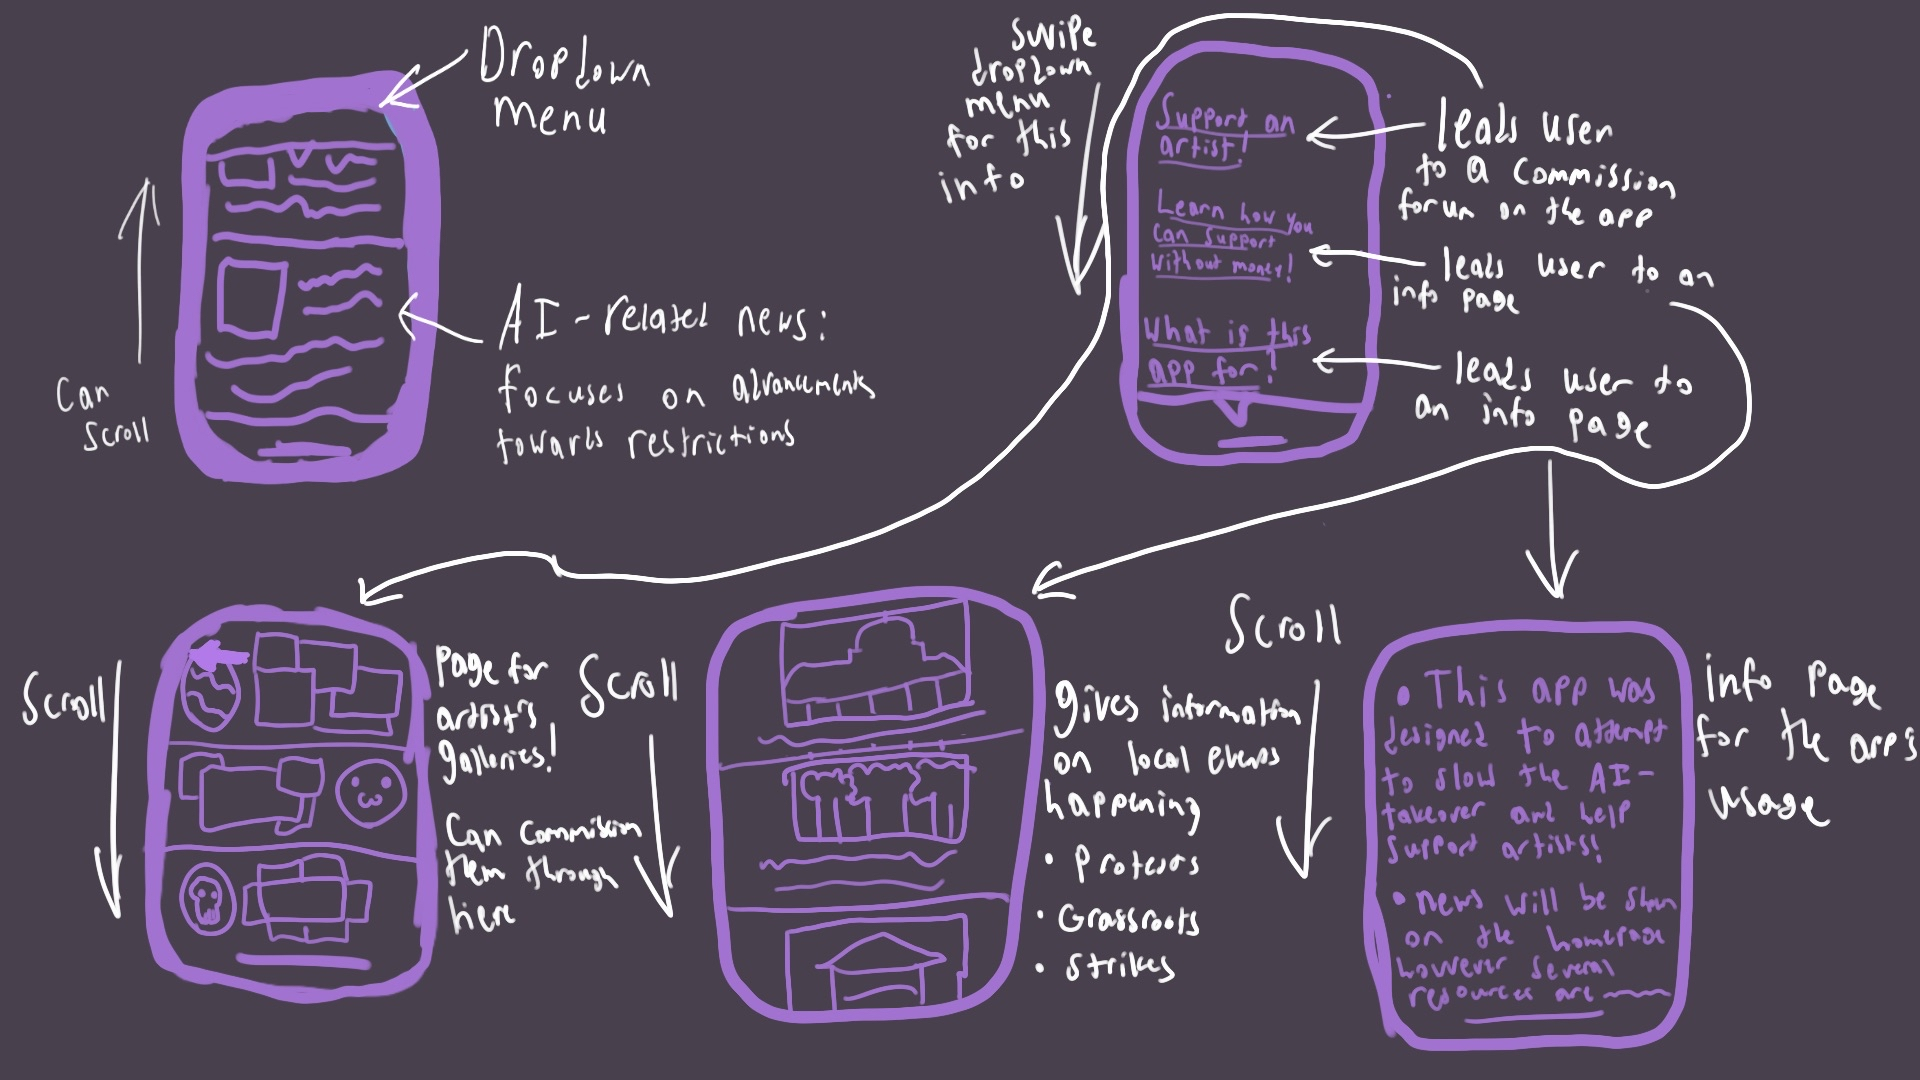 Dropdown
menu
Can
Scroll
AI-related news:
focuses on advancements
towards restrictions
Swipe
dropdown
menu
for this
info
Support an
artist!
Learn how you
can support
without money!
What is this
app for?
leads user
to a commission
forum on the app
leads user to an
info page
leads user to
an info page
Scroll
Page for
artist's
galleries!
Can commission
them through
here
Scroll
gives information
on local events
happening
• Protests
• Grassroots
• Strikes
Scroll
• This app was
designed to attempt
to slow the AI-
takeover and help
support artists!
• news will be shown
on the homepage
however several
resources are
info page
for the app's
usage